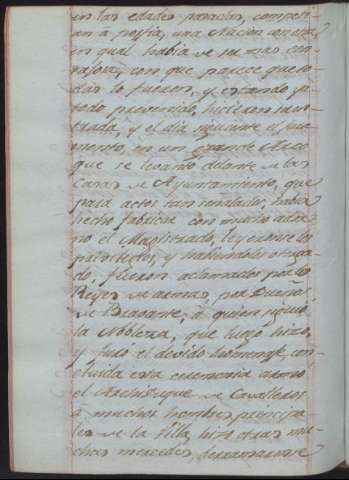 en las edades pasadas, compen-
an a porfia, una Nacion con otra,
in qual havia de ser mas
con que parece que to-
das lo fueron, y estando ya
todo prevenido, hicieron su en-
trada, y el dia siguiente el jura-
mento, en un grande Arco
que se levantó delante de las
Casas de Ayuntamiento, que
para actos tan señalados, havia
hecho fabricar con mucho ador-
no el Magistrado, leyeronse los
privilegios, y haviendoles otorga-
do, fueron aclamados por los
Reyes de armas, por Dueños
de Brabante, á quien siguió
la Nobleza, que luego hizo,
y juró el devido homenage, con-
cluida esta ceremonia armó
el Archiduque de Cavalleros
á muchos hombres principa-
les de la Villa, hizo otras mu-
chas mercedes, derramaronse